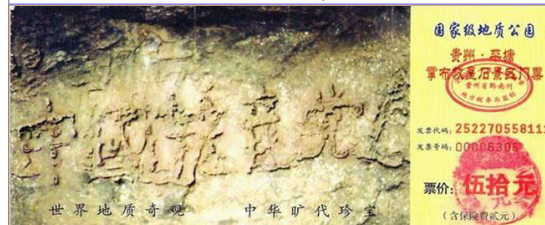 中國共産党亡
世界地质奇观 中华旷代珍宝
国家级地质公园
贵州·平塘
掌布藏字石景区门票
贵州省黔南州
地方税务局监制
发票代码: 25227055811
发票号码: 00006306
票价: 伍拾元
(含保险费贰元)